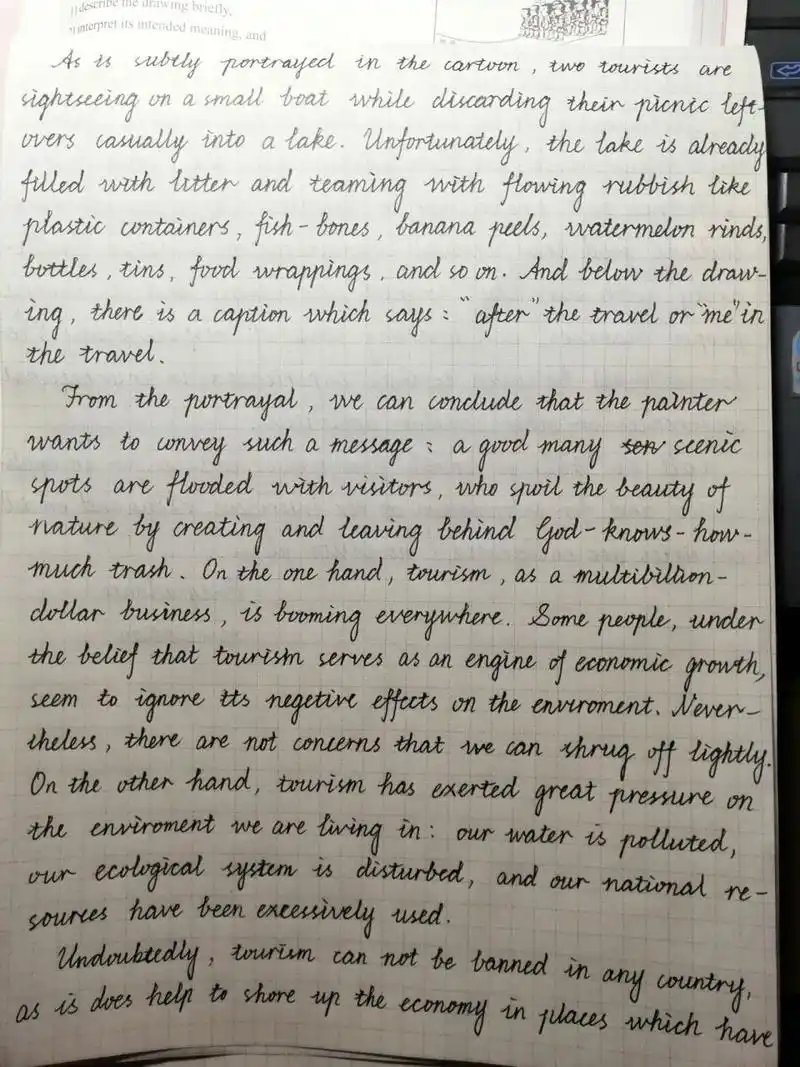 describe the drawing briefly,
interpret its intended meaning, and
As is subtly portrayed in the cartoon, two tourists are
sightseeing on a small boat while discarding their picnic left-
overs casually into a lake. Unfortunately, the lake is already
filled with litter and teaming with flowing rubbish like
plastic containers, fish-bones, banana peels, watermelon rinds,
bottles, tins, food wrappings, and so on. And below the draw-
ing, there is a caption which says: "after" the travel or "me" in
the travel.
From the portrayal, we can conclude that the painter
wants to convey such a message: a good many scenic
spots are flooded with visitors, who spoil the beauty of
nature by creating and leaving behind God-knows-how-
much trash. On the one hand, tourism, as a multibillion-
dollar business, is booming everywhere. Some people, under
the belief that tourism serves as an engine of economic growth,
seem to ignore its negetive effects on the enviroment. Never-
theless, there are not concerns that we can shrug off lightly.
On the other hand, tourism has exerted great pressure on
the enviroment we are living in: our water is polluted,
our ecological system is disturbed, and our national re-
sources have been excessively used.
Undoubtedly, tourism can not be banned in any country,
as is does help to shore up the economy in places which have